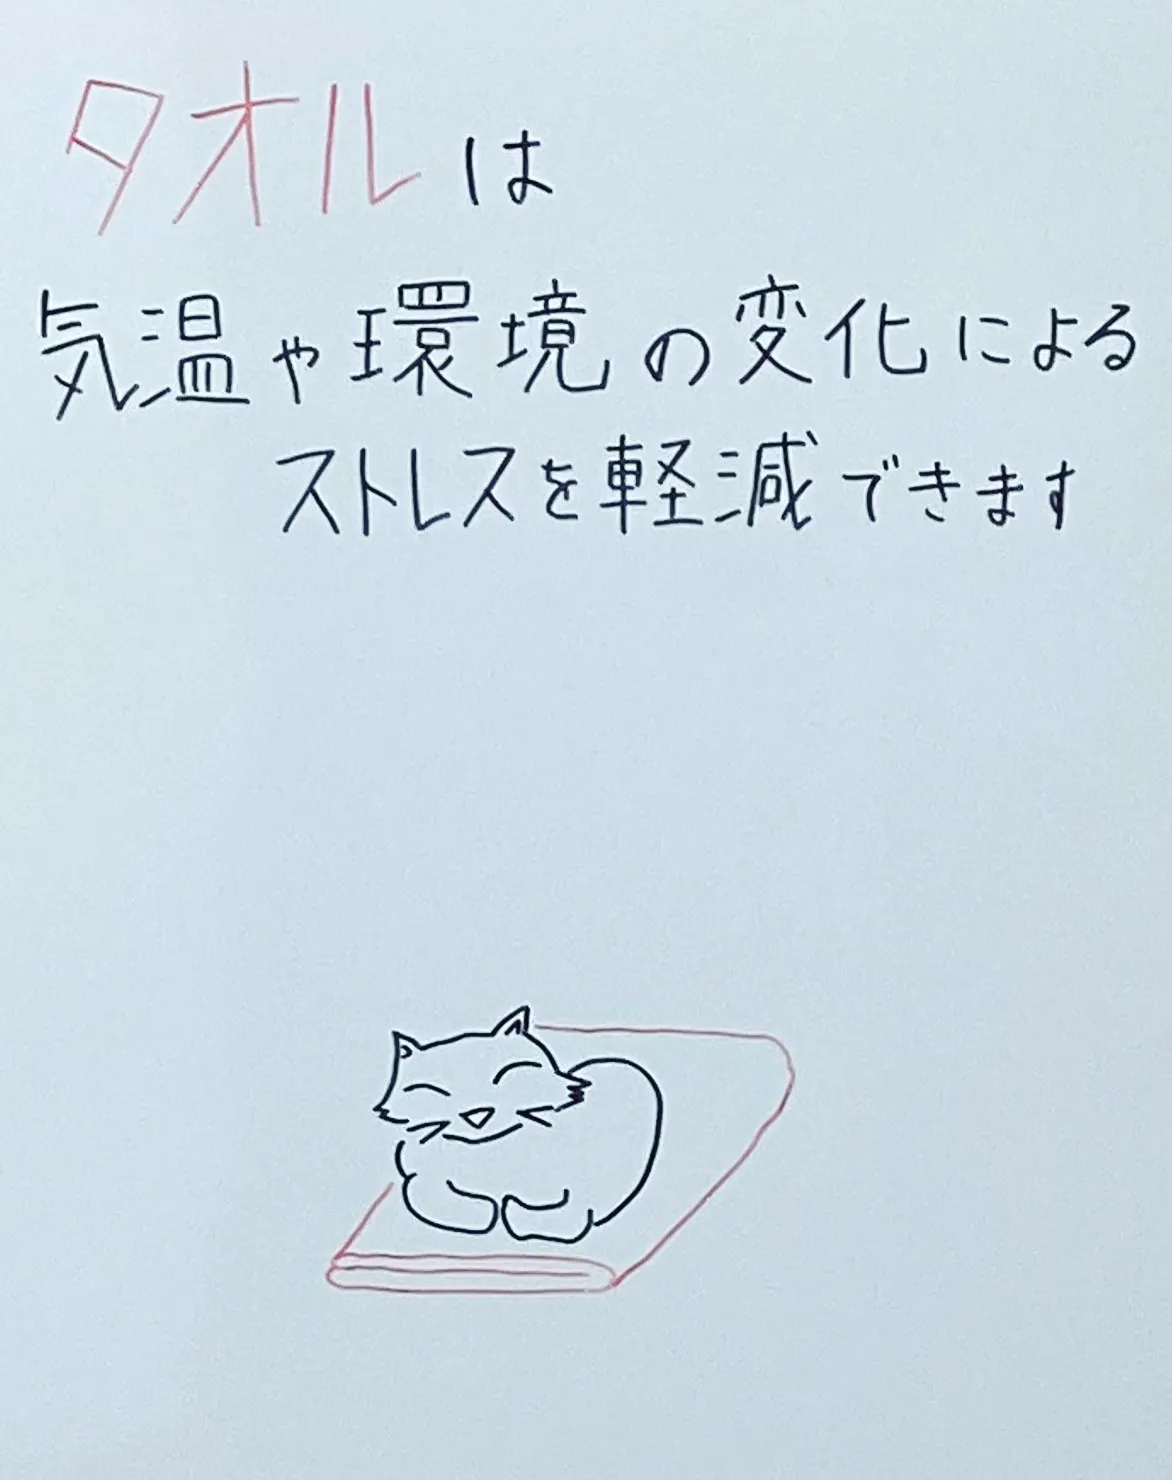 タオルは
気温や環境の変化による
ストレスを軽減できます